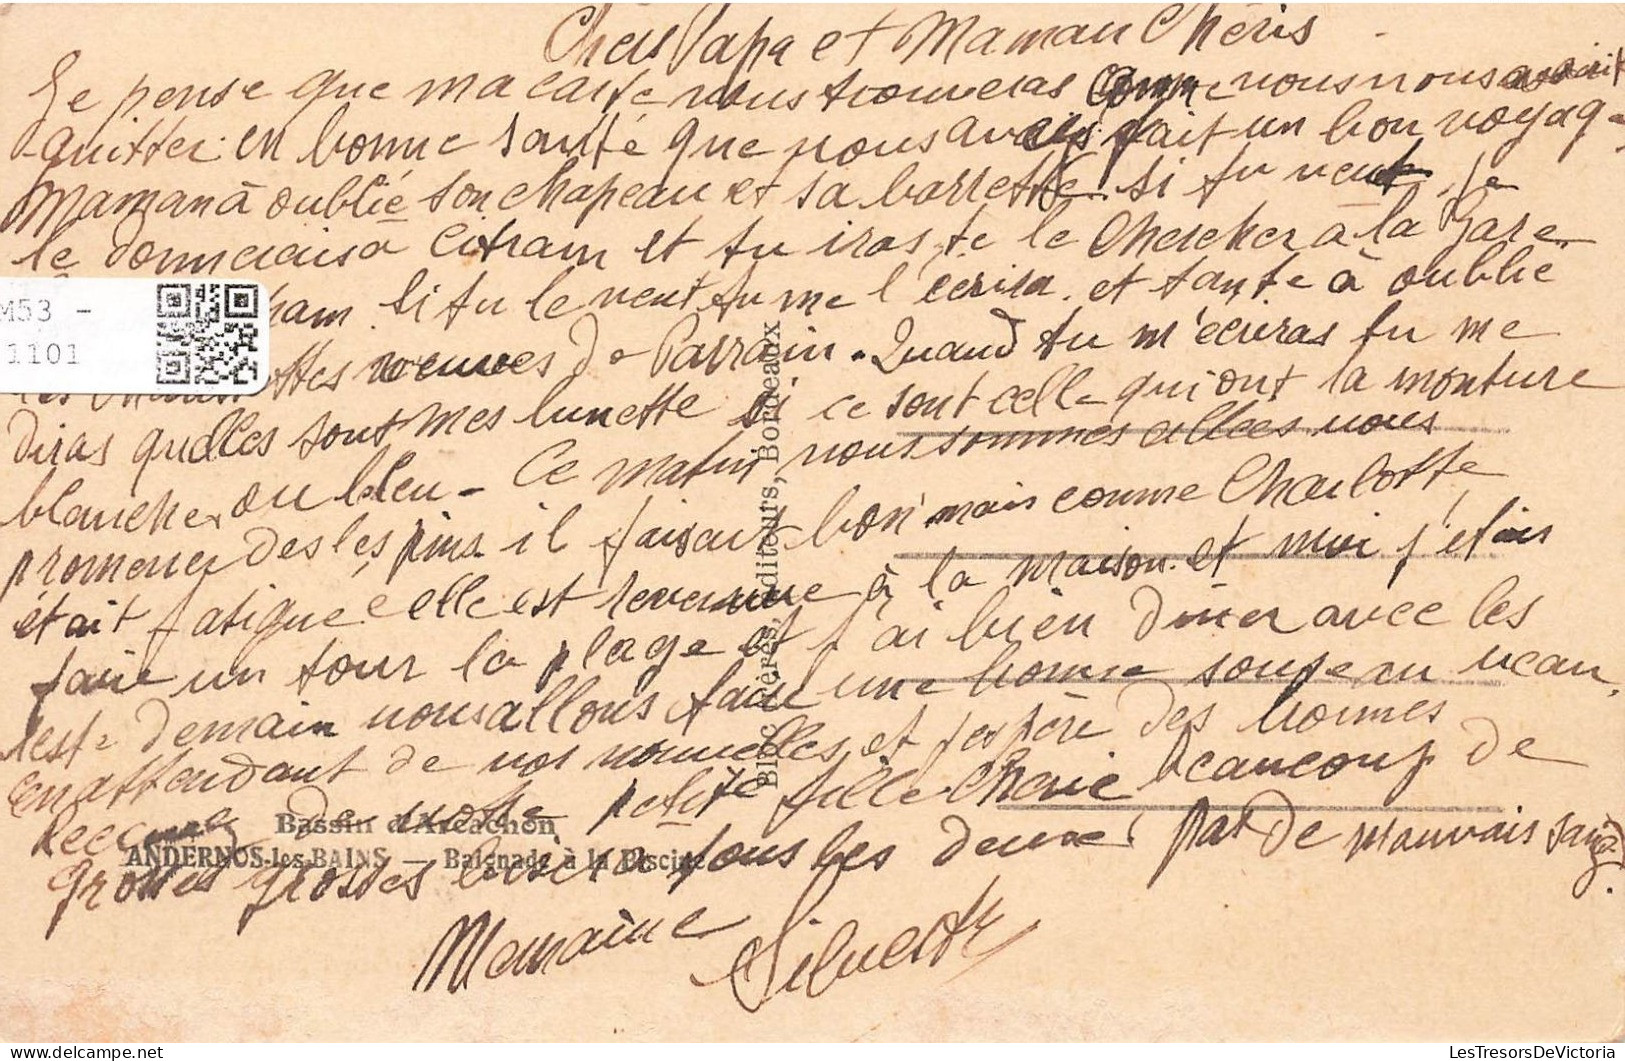 Chers Papa et Maman Chéris
Je pense que ma carte vous trouveras comme nous nous
quitter en bonne santé que vous avez fait un bon voyag-
Maman à oublié son chapeau et sa barrette si tu veut je
le donnerais à Citram et tu iras te le Chercher à la Gare
si tu le veut tu me l'écrira. et tante à oublié
M53 -
1101
de Parrain. Quand tu m'écriras tu me
diras quelles sont mes lunette si ce sont celle qui ont la monture
blanche ou bleu - Ce matin nous sommes allées nous
promener des les pins il faisait bon mais comme Charlotte
était fatiguée elle est revenue à la maison. et moi j'étais
faire un tour la plage et j'ai bien diner avec les
demain nous allons faire une bonne soupe au
en attendant de vos nouvelles et j'espère des bonnes
Recevez de votre petite fille Cherie beaucoup de
grosses grosses bises a tous les deux pat de mauvais sang.
Marraine
Bassin d'Arcachon
ANDERNOS-les-BAINS — Baignade à la Piscine
Bloc Frères, Editeurs, Bordeaux
LesTresorsDeVictoria